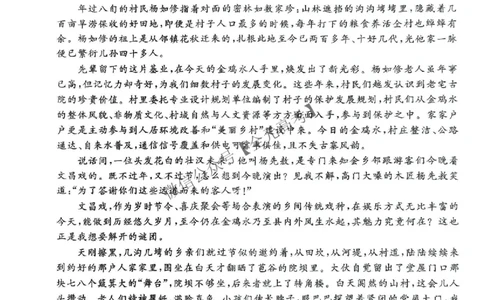 年过八旬的村民杨如修指着对面的密林如数家珍:山林遮挡的沟沟垮垮里,隐藏着几
百亩旱涝保收的好田地,即便是村子人口最多的时候,每年打下的粮食养活全村也绰绰有
余。杨如修的祖上是从邻镇花秋迁来的,扎根此地至今已两百多年、十好几代,光他家一脉
便已繁衍儿孙四十多人。
先辈留下的这片基业,在今天的金瑞水人手里,焕发出了新光彩。杨如修老人虽年事
已高,但记忆力却奇好,为我们细数村子的发展变化。这些年来,村民们越发认识到老宅古
院的珍贵价值。村里委托专业设计规划单位编制了村子的保护发展规划,村民们从金瑞水
的整体风貌、非物质文化、村寨自然与人文资源等方方面面入手,参与到保护之中。家家户
户更是主动参与到人居环境改善和“美丽乡村”建设中来。今日的金瑞水,村庄整洁、公路
通达、自来水普及,通信信号覆盖和供电可靠安全俱佳,且不失古寨风韵。
说话间,一位头发花白的壮汉来到,他叫杨先教,是专门来知会乡邻跟游客们今晚看
文昌戏的。既不过年,又不过节,怎么想到今晚演出?见我不解,高门大嗓的木匠杨先教笑
道:“为了答谢你们这些远道而来的客人呀!”
文昌戏,作为岁时节令、喜庆聚会等场合表演的乡间传统戏种,在娱乐方式无比丰富的
今天,能做到历经悠久岁月,至今仍在金瑞水乃至县内外风生水起,其魅力究竟何在?这也
正是我想要解开的谜团。
天刚擦黑,几沟几塆的乡亲们就过节似的邀约着,从田坎,从河堤,从村道,陆陆续续来
到约好的那户人家家里,围坐在白天才翻晒了苞谷的院坝里。大伙自觉留出了堂屋门口那
块七八个簸箕大的“舞台”,院坝不够坐,后来者就上了转角楼。白天阒然的山村,这会儿人